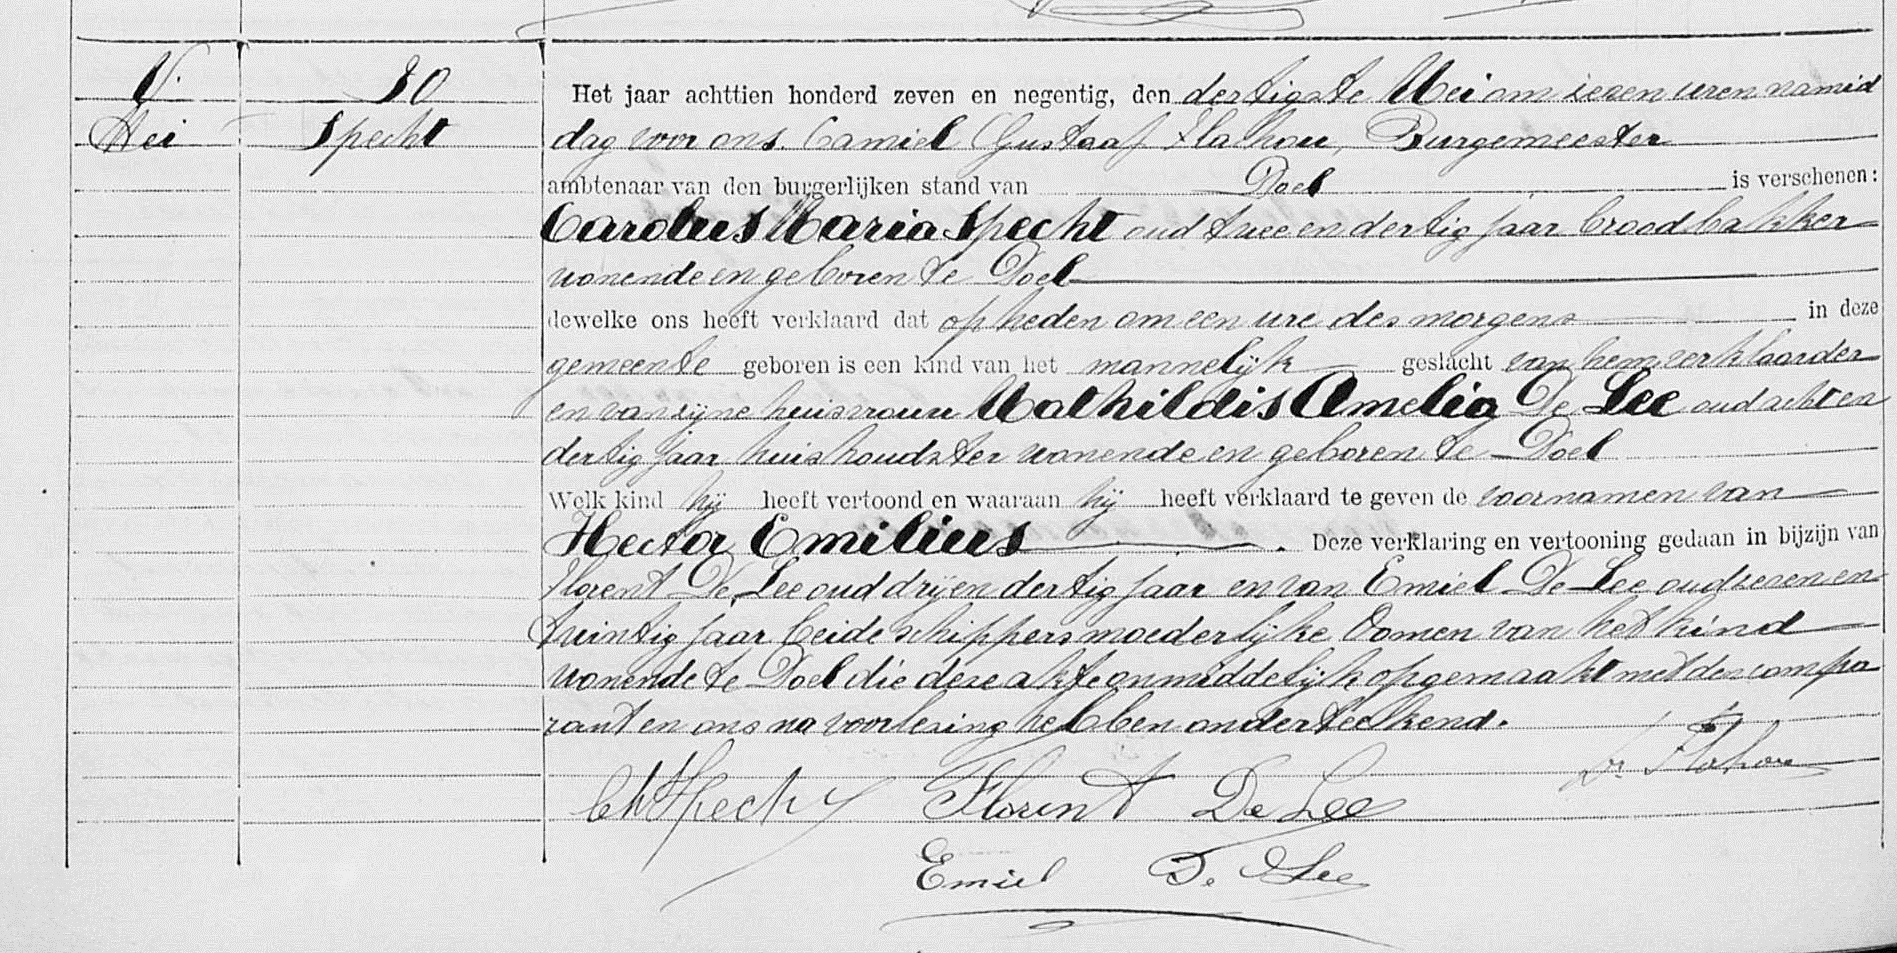 V. 30
Mei Specht
Het jaar achttien honderd zeven en negentig, den dertigste Mei om zeven uren namid
dag voor ons. Camiel Gustaaf Flahou, Burgemeester
ambtenaar van den burgerlijken stand van Doel is verschenen:
Carolus Maria Specht oud twee en dertig jaar broodbakker
wonende en geboren te Doel
dewelke ons heeft verklaard dat op heden om een ure des morgens in deze
gemeente geboren is een kind van het mannelijk geslacht van hem verklaarder
en van zijne huisvrouw Mathildis Amelia De Lee oud acht en
dertig jaar huishoudster wonende en geboren te Doel
Welk kind hij heeft vertoond en waaraan hij heeft verklaard te geven de voornamen van
Hector Emilius. Deze verklaring en vertooning gedaan in bijzijn van
Florent De Lee oud drij en dertig jaar en van Emiel De Lee oud zeven en
twintig jaar beide schippers moederlijke Oomen van het kind
wonende te Doel die deze akte onmiddelijk opgemaakt met den compa
rant en ons na voorlezing hebben onderteekend.
Flahou
Specht Florent De Lee
Emiel De Lee